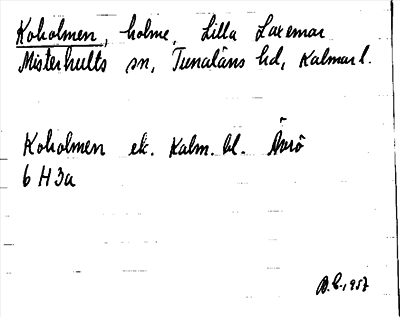 Koholmen, holme, Lilla Laxemar
Misterhults sn, Tunaläns hd, Kalmar l.
Koholmen ek. Kalm. bl.
6 H 3a
1957